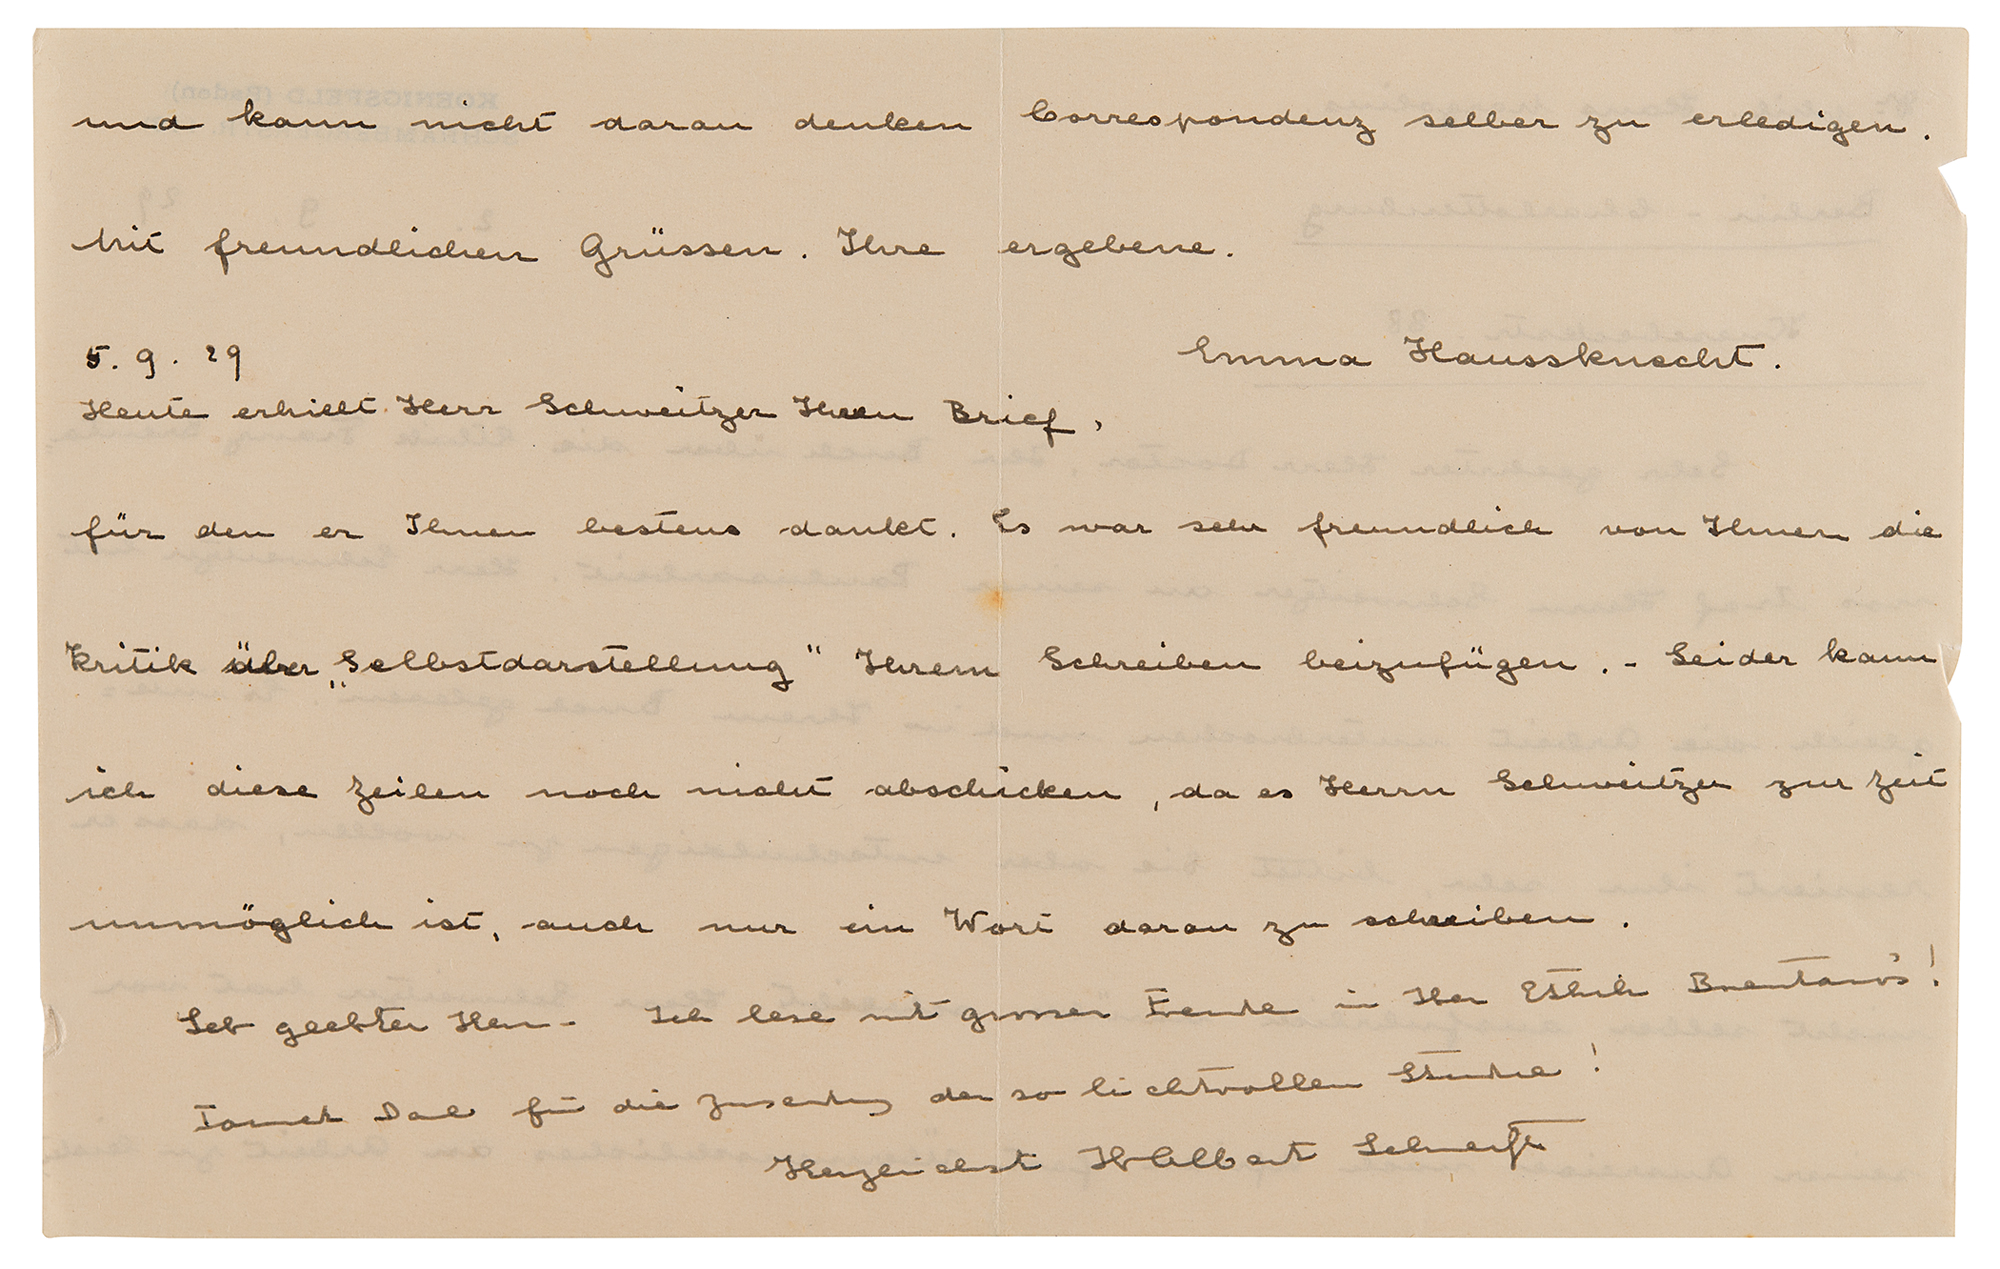 und kann nicht daran denken Correspondenz selber zu erledigen.
Mit freundlichen Grüssen. Ihre ergebene.
Emma Haussknecht.
5. 9. 29
Heute erhielt Herr Schweitzer Ihren Brief,
für den er Ihnen bestens dankt. Es war sehr freundlich von Ihnen die
Kritik über „Selbstdarstellung" Ihrem Schreiben beizufügen. - Leider kann
ich diese Zeilen noch nicht abschicken, da es Herrn Schweitzer zur Zeit
unmöglich ist, auch nur ein Wort daran zu schreiben.
geehrter Herr - Ich lese mit grosser Freude in Ihrer Ethik Brentano's!
Dank für die Zusendung der so lichtvollen Studie!
Herzlichst Ihr Albert Schweitzer